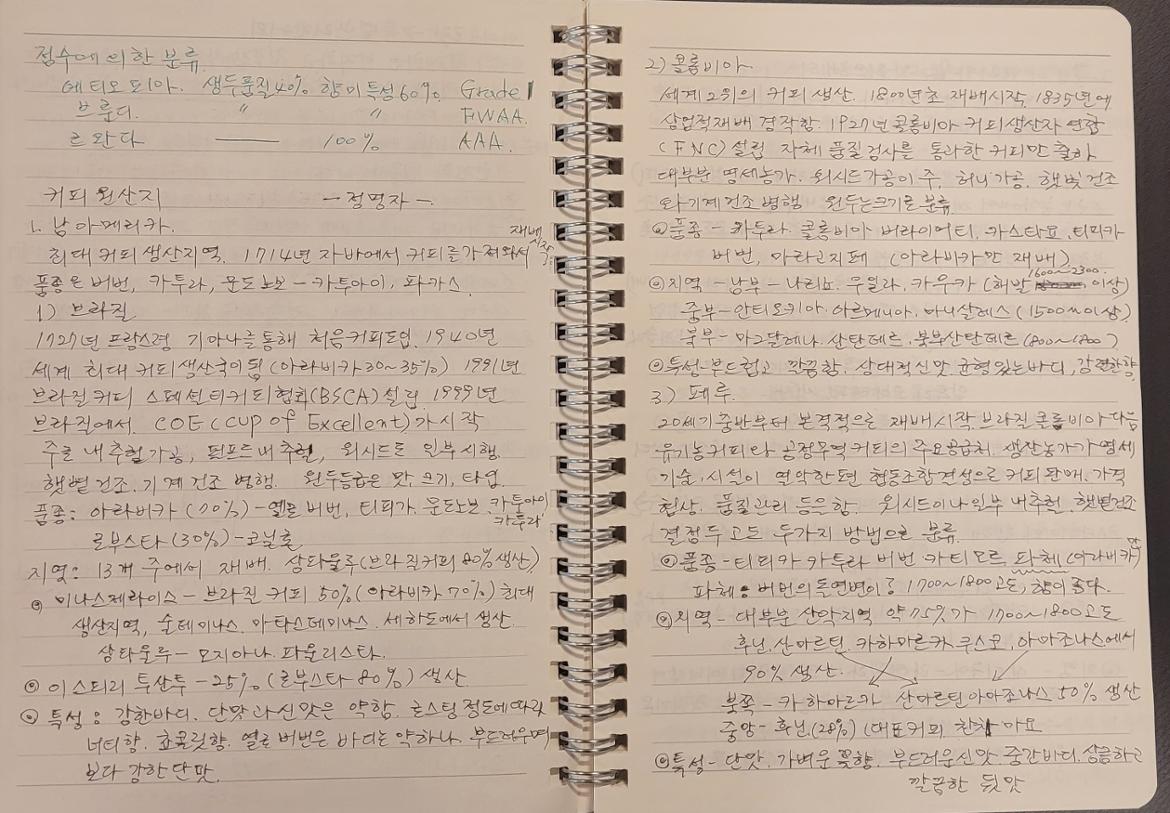 점수에 의한 분류.
에티오피아. 생두품질40% 향미특성60% Grade 1
브룬디. " " FWAA.
르완다 —— 100% AAA.
커피 원산지 - 정명자 -
1. 남아메리카. 재배시작
최대 커피 생산지역. 1714년 자바에서 커피를 가져와서
품종은 버번, 카투라, 문도노보-카투아이, 파카스.
1) 브라질
1727년 프랑스령 기아나를 통해 처음커피도입. 1940년
세계 최대 커피생산국이 됨(아라비카 30~35%) 1991년
브라질커피 스페셜티커피협회(BSCA)설립. 1999년
브라질에서. COE (CUP of Excellent)가 시작
주로 내추럴가공, 펄프드내추럴, 워시드도 일부시행.
햇볕건조. 기계건조 병행. 원두등급은 맛. 크기, 타입.
품종: 아라비카 (70%)-옐로버번, 티피카. 문도노보. 카투아이
카투라
로부스타(30%)-코닐론
지역: 13개 주에서 재배. 상타울루(브라질커피 80%생산)
◎ 미나스제라이스 - 브라질 커피 50%(아라비카 70%) 최대
생산지역, 술데미나스. 마타스데미나스. 세하도에서 생산.
상타울루- 모지아나. 파울리스타.
◎ 이스피리투산투 -25% (로부스타 80%) 생산
◎ 특성: 강한바디. 단맛과 신맛은 약함. 로스팅정도에 따라
너티향. 쵸콜릿향. 옐로버번은 바디는 약하나. 부드러우며
보다 강한 단맛.
2) 콜롬비아.
세계2위의 커피 생산. 1800년초 재배시작. 1835년에
상업적재배 경작함. 1927년 콜롬비아 커피생산자 연합
(FNC)설립 자체 품질검사를 통과한 커피만 출하
대부분 영세농가. 워시드가공이 주. 허니가공. 햇빛건조
와 기계건조 병행 원두는크기로 분류.
◎품종 - 카투라. 콜롬비아 버라이어티. 카스티요. 티피카
버번, 마라고지페 (아라비카만 재배)
1600~2300.
◎지역 -남부-나리뇨. 우일라. 카우카 (해발 이상)
중부-안티오키아. 아르메니아. 마니살레스(1500m이상).
북부-마그달레나. 산탄데르. 북부산탄데르 (800~1800)
◎특성-부드럽고 깔끔함. 상대적신맛 균형있는바디, 강렬한향
3) 페루.
20세기중반부터 본격적으로 재배시작. 브라질 콜롬비아 다음
유기농커피와 공정무역 커피의 주요공급처. 생산농가가 영세
기술. 시설이 열악한편 협동조합결성으로 커피판매. 가격
협상. 품질관리 등을함. 워시드이나 일부 내추럴. 햇볕건조
결점두 고도 두가지 방법으로 분류.
◎품종 -티피카 카투라 버번 카티모르 파체(아라비카만)
파체: 버번의 돌연변이종 1700~1800고도, 향이좋다.
◎지역 - 대부분 산악지역 약75%가 1700~1800고도
후닌. 산마르틴. 카하마르카. 쿠스코, 아마조나스에서
90% 생산.
북쪽- 카하마르카 산마르틴 아마조나스 50% 생산
중앙- 후닌.(28%) (대표커피 찬차마요
◎특성- 단맛. 가벼운 꽃향. 부드러운신맛. 중간바디. 상큼하고
깔끔한 뒷맛